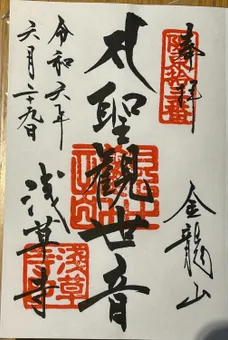 奉拝
金龍山
聖觀世音
令和六年
六月二十九日
浅草寺